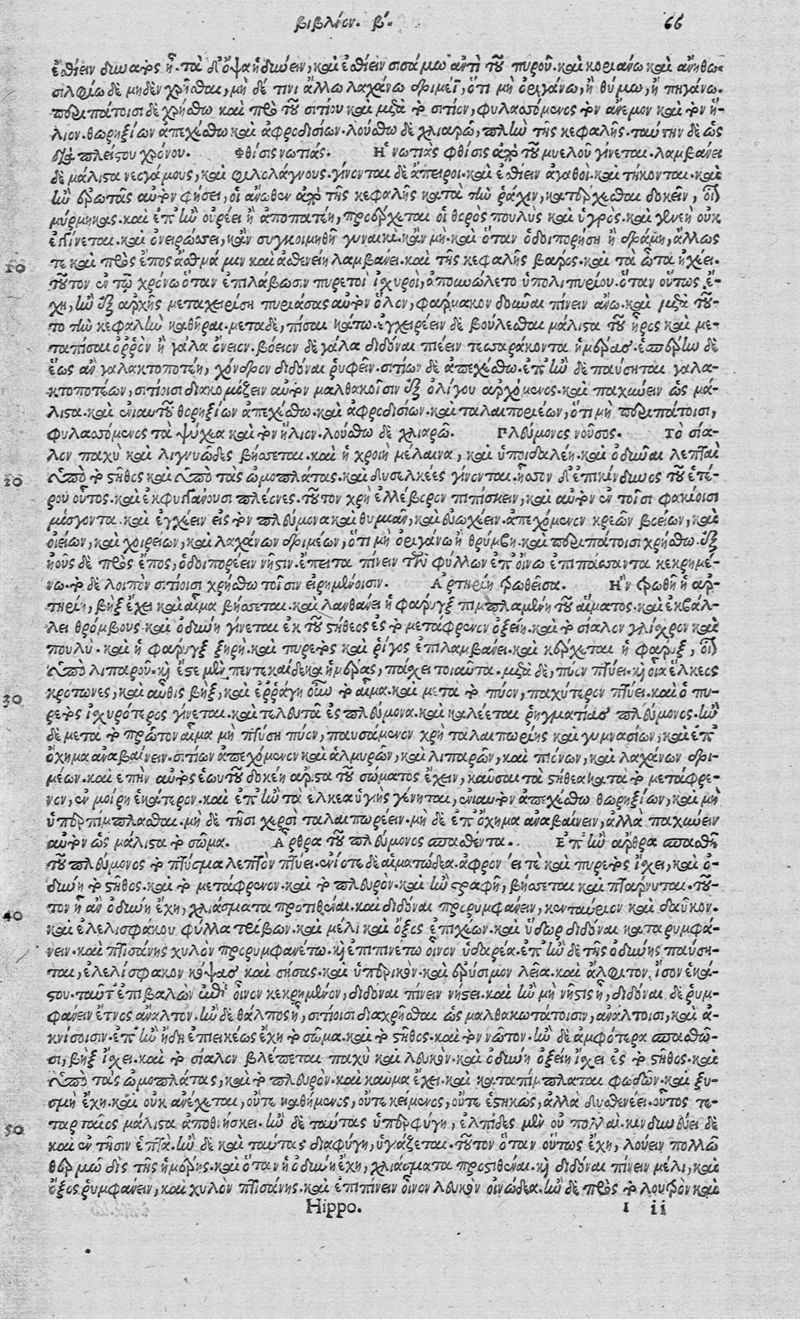 βιβλίον. β΄. 66
ἐσθίειν δὶς αὐτὸς ᾖ. τὰ δ᾽ ὄψα ἡδύνειν, καὶ ἐσθίειν σισάμω ἀντὶ τοῦ τυροῦ. καὶ κοριάνω καὶ ἀνήθω.
σιλφίω δὲ μηδὲν χρῆσθαι, μὴ δέ τινι ἄλλω λαχάνω δριμεῖ, ὅτι μὴ ὀριγάνω, ἢ θύμω, ἢ πηγάνω.
περιπάτοισι δὲ χρήσθω καὶ πρὸ τοῦ σιτίου καὶ μετὰ τὸ σιτίον, φυλασσόμενος τὸν ἄνεμον καὶ τὸν ἥ-
λιον. θωρηξίων ἀπεχέσθω καὶ ἀφροδισίων. λούσθω δὲ χλιαρῶ, πλὴν τῆς κεφαλῆς. ταύτην δὲ ὡς
διὰ πλείστου χρόνου. Φθίσις νωτιάς. Ἡ νωτιὰς φθίσις ἀπὸ τοῦ μυελοῦ γίνεται. λαμβάνει
δὲ μάλιστα νεογάμους, καὶ φιλολάγνους. γίνονται δὲ ἄπειροι. καὶ ἐσθίειν ἀγαθοὶ. καὶ τήκονται. καὶ
ἢν ἐρωτᾶς αὐτὸν φήσει, οἱ ἄνωθεν ἀπὸ τῆς κεφαλῆς κατὰ τὴν ῥάχιν, κατέρχεσθαι δοκεῖν, οἷον
μύρμηκας. καὶ ἐπὴν οὐρέει ἢ ἀποπατέη, προέρχεται οἱ θορὸς πουλὺς καὶ ὑγρός. καὶ γενεὴ οὐκ
ἐγγίνεται. καὶ ὀνειρώσσει, κἂν συγκοιμηθῇ γυναικὶ. κἂν μὴ. καὶ ὅταν ὁδοιπορήση ἢ δράμη, ἄλλως
10 τε καὶ πρὸς ἔπος ἆσθμά μιν καὶ ἀσθενείη λαμβάνει. καὶ τῆς κεφαλῆς βάρος. καὶ τὰ ὦτα ἠχέει.
τοῦτον ἐν τῶ χρόνω ὅταν ἐπιλάβωσιν πυρετοὶ ἰσχυροὶ, ἀπ᾽ οὖν ὤλετο ὑπὸ λιπυρίου. ὅταν οὕτως ἔ-
χη, ἢν ἐξ ἀρχῆς μεταχειρίση πυριάσας αὐτὸν ὅλον, φάρμακον δοῦναι πίνειν ἄνω. καὶ μετὰ τοῦ-
το τὴν κεφαλὴν καθῆραι. μετὰ δὲ, πῖσαι κάτω. ἐγχειρέειν δὲ βούλεσθαι μάλιστα τοῦ ἦρος καὶ με-
ταπῖσαι ὀρρὸν ἢ γάλα ὄνειον. βόειον δὲ γάλα διδόναι πιέειν τεσσαράκοντα ἡμέρας. ἑσπέρην δὲ
ἕως ἂν γαλακτοποτέη, χόνδρον διδόναι ῥυφεῖν. σιτίων δὲ ἀπεχέσθω. ἐπὴν δὲ παύσηται γαλα-
κτοποτέων, σιτίοισι διακομίζειν αὐτὸν μαλθακοῖσιν ἐξ ὀλίγου ἀρχόμενος. καὶ παχύνειν ὡς μά-
λιστα. καὶ ἐνιαυτοῦ θορηξίων ἀπεχέσθω. καὶ ἀφροδισίων καὶ ταλαιπωριέων, ὅτι μὴ περιπάτοισι,
φυλασσόμενος τὰ ψύχεα καὶ τὸν ἥλιον. λούσθω δὲ χλιαρῶ. Πλεύμονος νοῦσος. Τὸ σία-
λον παχὺ καὶ λιγνυῶδες βήσσεται. καὶ ἡ χροιὴ μέλαινα, καὶ ὑποιδαλέη. καὶ ὀδύναι λεπταὶ
20 ὑπὸ τὸ στῆθος καὶ ὑπὸ τὰς ὠμοπλάτας. καὶ δυσελκέες γίνονται. ἧσσον δ᾽ ἐπικίνδυνος τοῦ ἑτέ-
ρου οὗτος. καὶ ἐκφυγγάνουσι πλέονες. τοῦτον χρὴ ἐλλέβορον πιπίσκειν, καὶ αὐτὸν ἐν τοῖσι φακίοισι
μίσγοντα. καὶ ἐγχέειν εἰς τὸν πλεύμονα καὶ θυμιᾶν, καὶ εὐωχέειν. ἀπεχόμενον κρεῶν βοείων, καὶ
οἰείων, καὶ χοιρείων, καὶ λαχάνων δριμέων, ὅτι μὴ ὀριγάνη ἢ θρύμβη. καὶ περιπάτοισι χρήσθω. ἐξ
ἠοῦς δὲ πρὸς ἔπος, ὁδοιπορέειν νῆστιν. ἔπειτα πίνειν τῶν φύλλων ἐπ᾽ οἴνω ἐπιπάσαντα κεκρημέ-
νω. τὸ δὲ λοιπὸν σιτίοισι χρήσθω τοῖσιν εἰρημένοισιν. Ἀρτηρίη τρωθεῖσα. Ἢν τρωθῇ ἡ ἀρ-
τηρίη, βὴξ ἔχει καὶ αἷμα βήσσεται. καὶ λανθάνει ἡ φάρυγξ πιμπλαμένη τοῦ αἵματος. καὶ ἐκβάλ-
λει θρόμβους. καὶ ὀδύνη γίνεται ἐκ τοῦ στήθεος ἐς τὸ μετάφρενον ὀξείη. καὶ τὸ σίαλον γλίσχρον καὶ
πουλὺ. καὶ ἡ φάρυγξ ξηρὴ. καὶ πυρετὸς καὶ ῥῖγος ἐπιλαμβάνει. καὶ κέρχεται ἡ φάρυξ, οἷον
ὑπὸ λιπαροῦ. καὶ ἔστε μὲν πεντεκαίδεκα ἡμέρας, πάσχει τοιαῦτα. μετὰ δὲ, πύον πτύει. καὶ οἷα ἕλκεος
30 κρότωνες, καὶ αὖθις βὴξ, καὶ ἐρράγη οὖν τὸ αἷμα. καὶ μετὰ τὸ πύον, παχύτερον πτύει. καὶ ὁ πυ-
ρετὸς ἰσχυρότερος γίνεται. καὶ τελευτᾶ ἐς πλεύμονα. καὶ καλέεται ῥηγματίας πλεύμονος. ἢν
δὲ μετὰ τὸ πρῶτον αἷμα μὴ πτύση πύον, παυσάμενον χρὴ ταλαιπωρίης καὶ γυμνασίων, καὶ ἐπ᾽
ὄχημα ἀναβαίνειν. σιτίων ἀπεχόμενον καὶ ἁλμυρῶν, καὶ λιπαρῶν, καὶ πιόνων, καὶ λαχάνων δρι-
μέων. καὶ ἐπὴν αὐτὸς ἑωυτοῦ δοκέη ἄριστα τοῦ σώματος ἔχειν, καῦσαι τὰ στήθεα κατὰ τὸ μετάφρε-
νον, ἐν μοίρη ἑκάτερον. καὶ ἐπὴν τὰ ἕλκεα ὑγιὴς γένηται, ἐνιαυτὸν ἀπεχέσθω θωρηξίων, καὶ μὴ
ὑπερπίμπλασθαι. μὴ δὲ τῇσι χερσὶ ταλαιπωρέειν. μὴ δὲ ἐπ᾽ ὄχημα ἀναβαίνειν, ἀλλὰ παχύνειν
αὐτὸν ὡς μάλιστα τὸ σῶμα. Ἄρθρα τοῦ πλεύμονος σπασθέντα. Ἐπὴν ἄρθρα σπασθῇ
τοῦ πλεύμονος τὸ πτύσμα λεπτὸν πτύει. ἐνίοτε δὲ αἱματώδεα. ἄφρων ἐστί τε καὶ πυρετὸς ἴσχει, καὶ ὀ-
δύνη τὸ στῆθος. καὶ τὸ μετάφρενον. καὶ τὸ πλευρὸν. καὶ ἢν στραφῇ, βήσσεται καὶ πτάρνυται. τοῦ-
40 τον ᾗ ἂν ὀδύνη ἔχη, χλιάσματα προστιθέναι. καὶ διδόναι προρυμφάνειν, κενταύριον καὶ δαῦκον.
καὶ ἐλελισφάκου φύλλα τρίβων. καὶ μέλι καὶ ὄξος ἐπιχέων. καὶ ὕδωρ διδόναι καταρυμφά-
νειν. καὶ πτισάνης χυλὸν προρυμφανέτω. καὶ ἐπιπινέτω οἶνον ὑδαρέα. ἐπὴν δὲ τῆς ὀδύνης παύση-
ται, ἐλελίσφακον κόψας καὶ σήσας. καὶ ὑπέρικον. καὶ ἐρύσιμον λεῖα. καὶ ἄλφιτον, ἴσον ἑκά-
στου. ταῦτ᾽ ἐπιβαλὼν ἐπ᾽ οἶνον κεκρημένον, διδόναι πίνειν νήστει. καὶ ἢν μὴ νῆστις ᾖ, διδόναι δὲ ῥυμ-
φάνειν ἔτνος ἄναλτον. ἢν δὲ θάλπος ᾖ, σιτίοισι διαχρῆσθαι ὡς μαλθακωτάτοισιν, ἀνάλτοισι, καὶ ἀ-
κνίσοισιν. ἐπὴν ἤδη ἐπιεικέως ἔχη τὸ σῶμα. καὶ τὸ στῆθος. καὶ τὸν νῶτον. ἢν δὲ ἀμφότερα σπασθῶ-
σι, βὴξ ἴσχει. καὶ τὸ σίαλον βλέπεται παχὺ καὶ λευκὸν. καὶ ὀδύνη ὀξείη ἴσχει ἐς τὸ στῆθος καὶ
ὑπὸ τὰς ὠμοπλάτας, καὶ τὸ πλευρὸν. καὶ καῦμα ἔχει. καὶ καταπίμπλαται φωδῶν. καὶ ξυ-
σμὴ ἔχη. καὶ οὐκ ἀνέχεται, οὔτε καθήμενος, οὔτε κείμενος, οὔτε ἑστηκὼς, ἀλλὰ δυσθενέει. οὗτος τε-
50 ταρταῖος μάλιστα ἀποθνήσκει. ἢν δὲ ταύτας ὑπερφύγη, ἐλπίδες μὲν οὐ πολλαὶ. κινδυνεύει δὲ
καὶ ἐν τῇσιν ἑπτὰ. ἢν δὲ καὶ ταύτας διαφύγη, ὑγιάζεται. τοῦτον ὅταν οὕτως ἔχη, λούειν πολλῶ
θερμῶ δὶς τῆς ἡμέρης. καὶ ὅταν ἡ ὀδύνη ἔχη, χλιάσματα προστιθέναι. καὶ διδόναι πίνειν μέλι, καὶ
ὄξος ῥυμφάνειν, καὶ χυλὸν πτισάνης. καὶ ἐπιπίνειν οἶνον λευκὸν οἰνώδεα. ἢν δὲ πρὸς τὸ λουτρὸν καὶ
Hippo. I ii